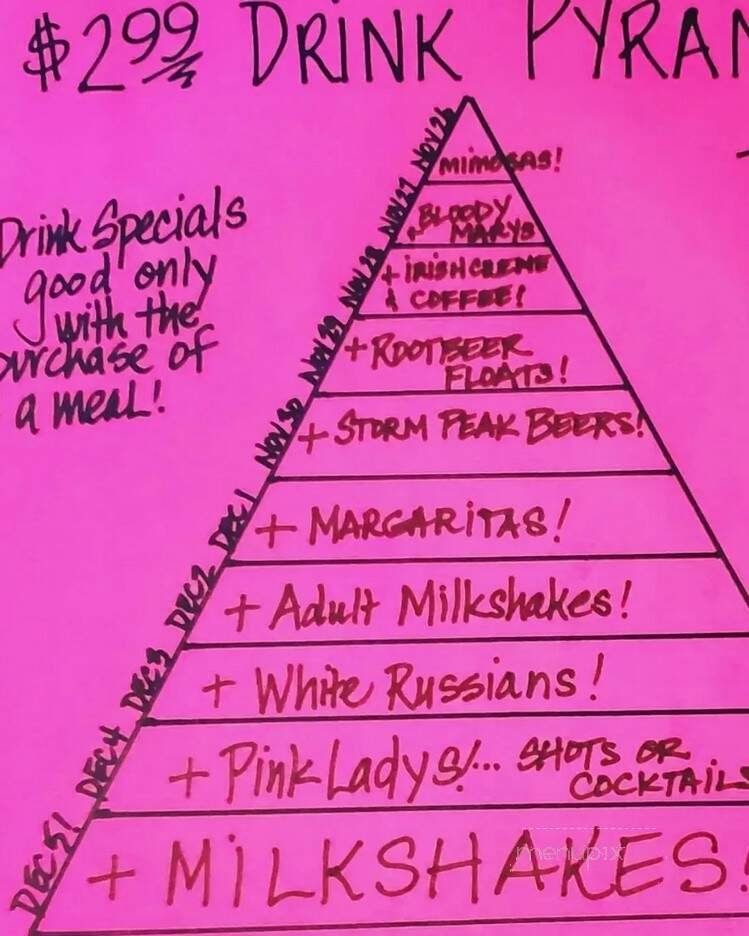 $2.99 DRINK PYRAM
Drink Specials
good only
with the
purchase of
a meal!
NOV 26
MIMOSAS!
NOV 27
+ BLOODY
MARYS
NOV 28
+ IRISH CREME
& COFFEE!
NOV 29
+ ROOTBEER
FLOATS!
NOV 30
+ STORM PEAK BEERS!
DEC 1
+ MARGARITAS!
DEC 2
+ Adult Milkshakes!
DEC 3
+ White Russians!
DEC 4
+ Pink Ladys!... SHOTS OR
COCKTAILS
DEC 5!
+ MILKSHAKES!
menupix